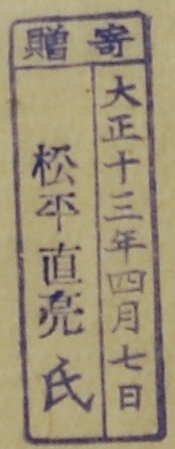 寄贈
大正十三年四月七日
松平直亮氏